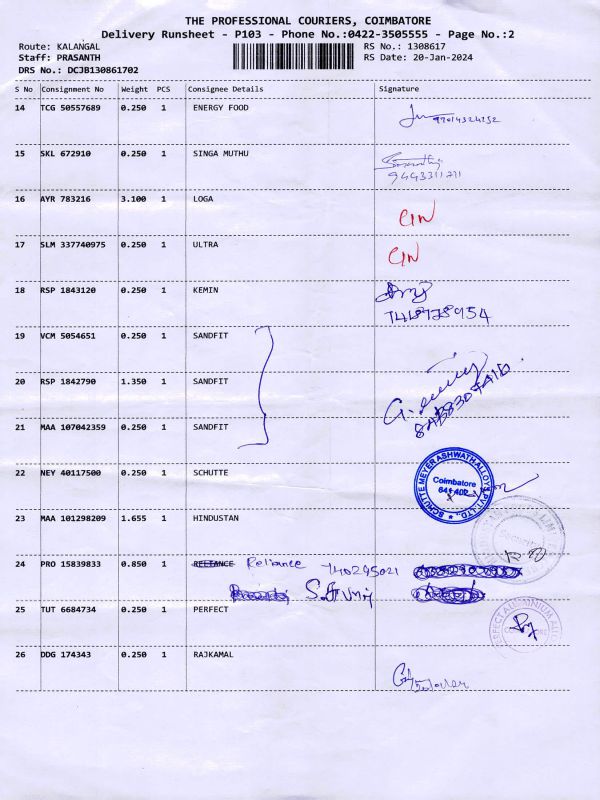 THE PROFESSIONAL COURIERS, COIMBATORE
Delivery Runsheet - P103 - Phone No.:0422-3505555 - Page No.:2
Route: KALANGAL RS No.: 1308617
Staff: PRASANTH RS Date: 20-Jan-2024
DRS No.: DCJB130861702
S No Consignment No Weight PCS Consignee Details Signature
14 TCG 50557689 0.250 1 ENERGY FOOD
15 SKL 672910 0.250 1 SINGA MUTHU
16 AYR 783216 3.100 1 LOGA
17 SLM 337740975 0.250 1 ULTRA
18 RSP 1843120 0.250 1 KEMIN
19 VCM 5054651 0.250 1 SANDFIT
20 RSP 1842790 1.350 1 SANDFIT
21 MAA 107042359 0.250 1 SANDFIT
22 NEY 40117500 0.250 1 SCHUTTE
SCHUTTE MEYER ASHWATH ALLOYS PVT LTD.,
Coimbatore
641 402
23 MAA 101298209 1.655 1 HINDUSTAN
Security
24 PRO 15839833 0.850 1 RELIANCE Reliance
25 TUT 6684734 0.250 1 PERFECT
PERFECT ALUMINIUM ALLOY
26 DDG 174343 0.250 1 RAJKAMAL